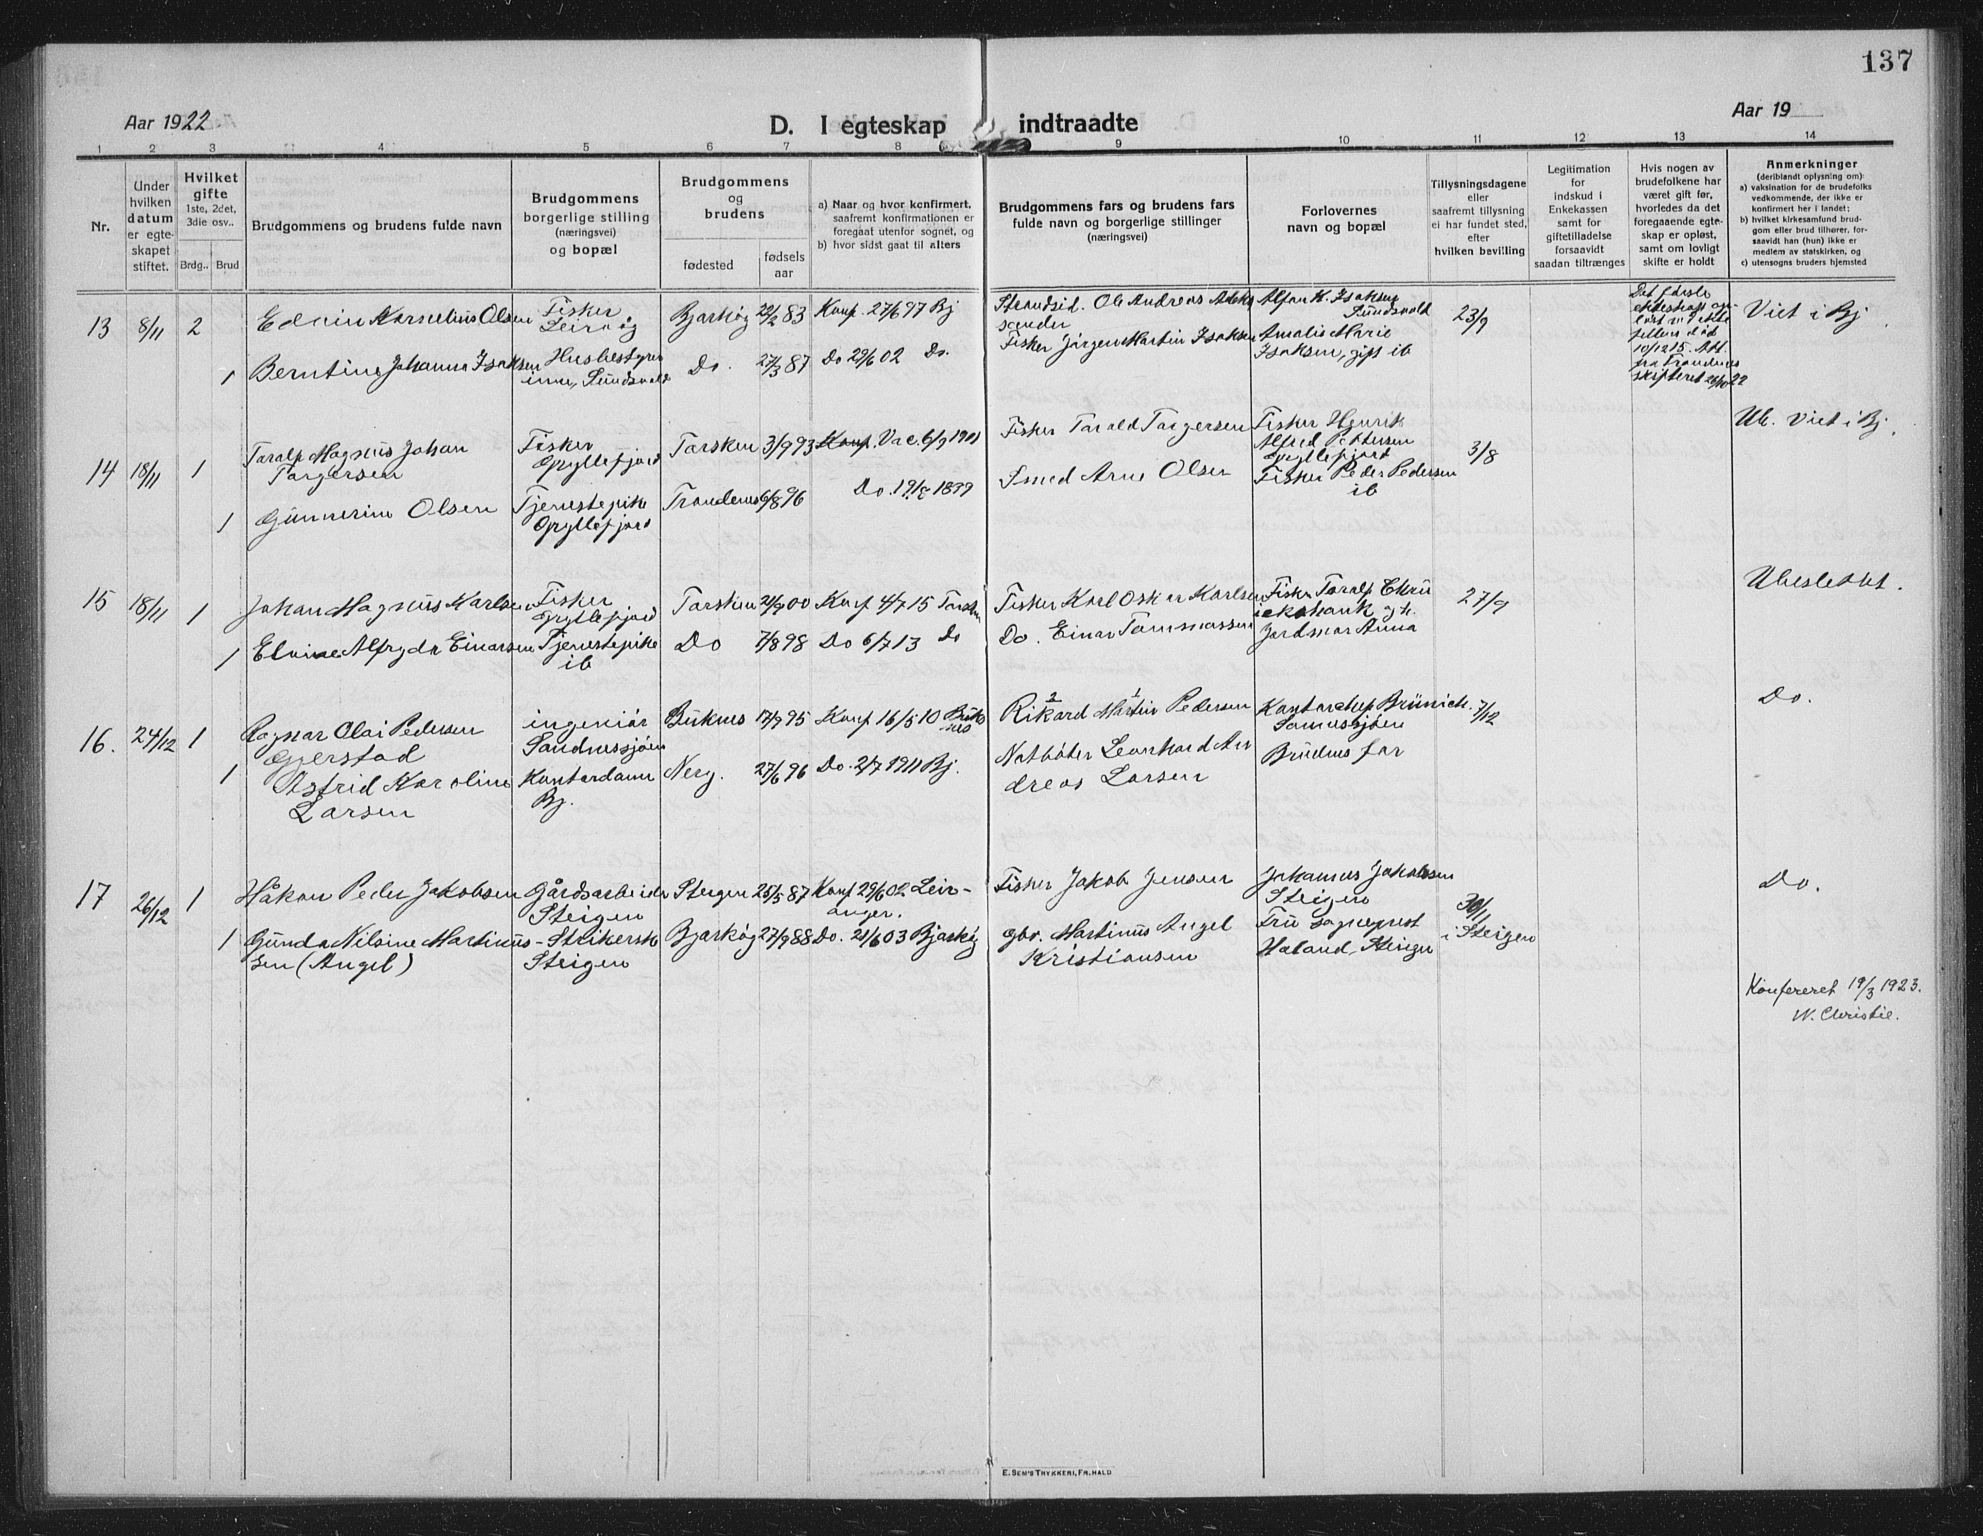 137
Aar 1922.
D. I egteskap indtraadte
Aar 19
1 2 3 4 5 6 7 8 9 10 11 12 13 14
Nr.
Under hvilken datum er egteskapet stiftet.
Hvilket gifte
1ste, 2det, 3die osv..
Brdg.. Brud
Brudgommens og brudens fulde navn
Brudgommens borgerlige stilling (næringsvei) og bopæl
Brudgommens og brudens
fødested
fødsels aar
a) Naar og hvor konfirmert, saafremt konfirmationen er foregaat utenfor sognet, og
b) hvor sidst gaat til alters
Brudgommens fars og brudens fars fulde navn og borgerlige stillinger (næringsvei)
Forlovernes navn og bopæl
Tillysningsdagene eller saafremt tillysning ei har fundet sted, efter hvilken bevilling
Legitimation for indskud i Enkekassen samt for giftetilladelse forsaavidt saadan tiltrænges
Hvis nogen av brudefolkene har været gift før, hvorledes da det foregaaende egteskap er opløst, samt om lovligt skifte er holdt
Anmerkninger
(deriblandt oplysning om):
a) vaksination for de brudefolks vedkommende, der ikke er konfirmert her i landet;
b) hvilket kirkesamfund brudgom eller brud tilhører, forsaavidt han (hun) ikke er medlem av statskirken, og
c) utensogns bruders hjemsted
13 8/11 2 Edvin Kornelius Olsen Fisker Leirvåg Bjarkøy 22/2 83 Konf. 27/6 97 Bj
Strandsid. Ole Andreas Aleksander
Alfon K. Isaksen Sundsvold 23/9
Viet i Bj.
1 Berntine Johanna Isaksen Husbestyrerinne, Sundsvold Do. 27/3 87 Do 29/6 02 Do.
Fisker Jörgen Martin Isaksen
Amalie Marie Isaksen, gift ib
Det første ekteskap
10/12 15. Att. fra Trondenes skifteret 28/10 22
14 18/11 1 Taralf Magnus Johan Torgersen Fisker Gryllefjord Torsken 3/9 93 Konf. Vac. 6/9 1901
Fisker Tarald Torgersen
Fisker Henrik Alfred Pettersen Gryllefjord 3/8
Ub. Viet i Bj.
1 Gunnerine Olsen Tjenestepike Gryllefjord Trondenes 6/8 96 Do. 19/8 1899
Smed Arne Olsen
Fisker Peder Pedersen ib
15 18/11 1 Johan Magnus Karlsen Fisker Gryllefjord Torsken 21/9 00 Konf 4/7 15 Torsken
Fisker Karl Oskar Karlsen
Fisker Taralf 27/9
Ubeslektet.
1 Elvine Alfryda Einarsen Tjenestepike ib Do 7/8 98 Do 6/7 13 Do
Do. Einar Tommassen
Jordmor Anna
16. 24/12 1 Ragnar Olai Pedersen Gjerstad ingeniør Sandnessjøen Buknes 17/9 95 Konf 16/5 10 Buknes
Rikard Martin Pedersen
2 1
Kontorchef Brünich. Sannessjøen 7/12
Do.
1 Astrid Karoline Larsen Kontordame Bj. Nerg. 27/6 96 Do. 2/7 1911 Bj.
Notbøter Leonhard Andreas Larsen
Brudens far
17 26/12 1 Håkon Peder Jakobsen Gårdsarbeider Steigen Steigen 25/5 87 Konf 29/6 02 Leiranger.
Fisker Jakob Jensen
Johannes Jakobsen Steigen 30/11 i Steigen
Do.
1 Gunda Nilsine Martinussen (Angel) Steigen Bjarkøy 27/9 88 Do. 21/6 03 Bjarkøy
gbr. Martinus Angel Kristiansen
Fru sogneprest Haland, Steigen
Konfereret 19/3 1923.
W. Christie.
E. SEM'S TRYKKERI, FR.HALD